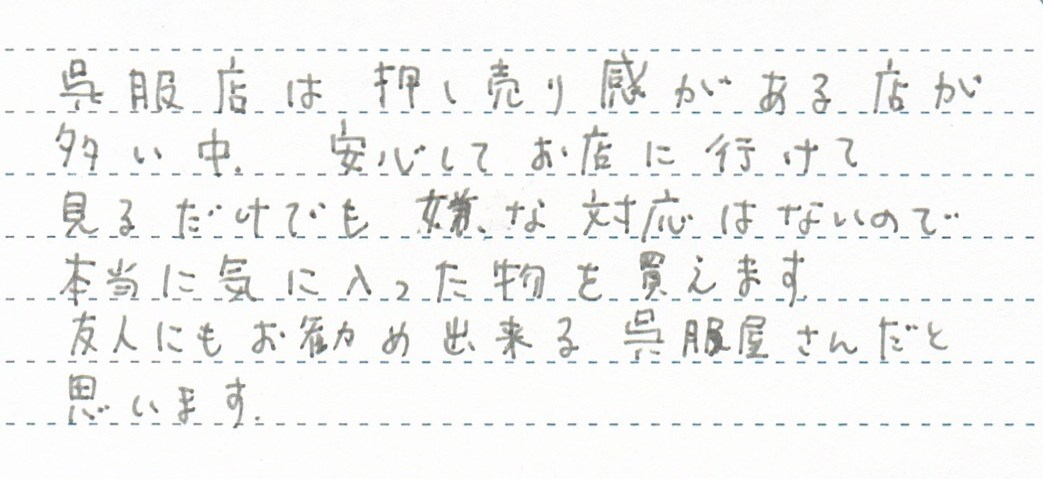 呉服店は押し売り感がある店が
多い中、安心してお店に行けて
見るだけでも嫌な対応はないので
本当に気に入った物を買えます。
友人にもお勧め出来る呉服屋さんだと
思います。